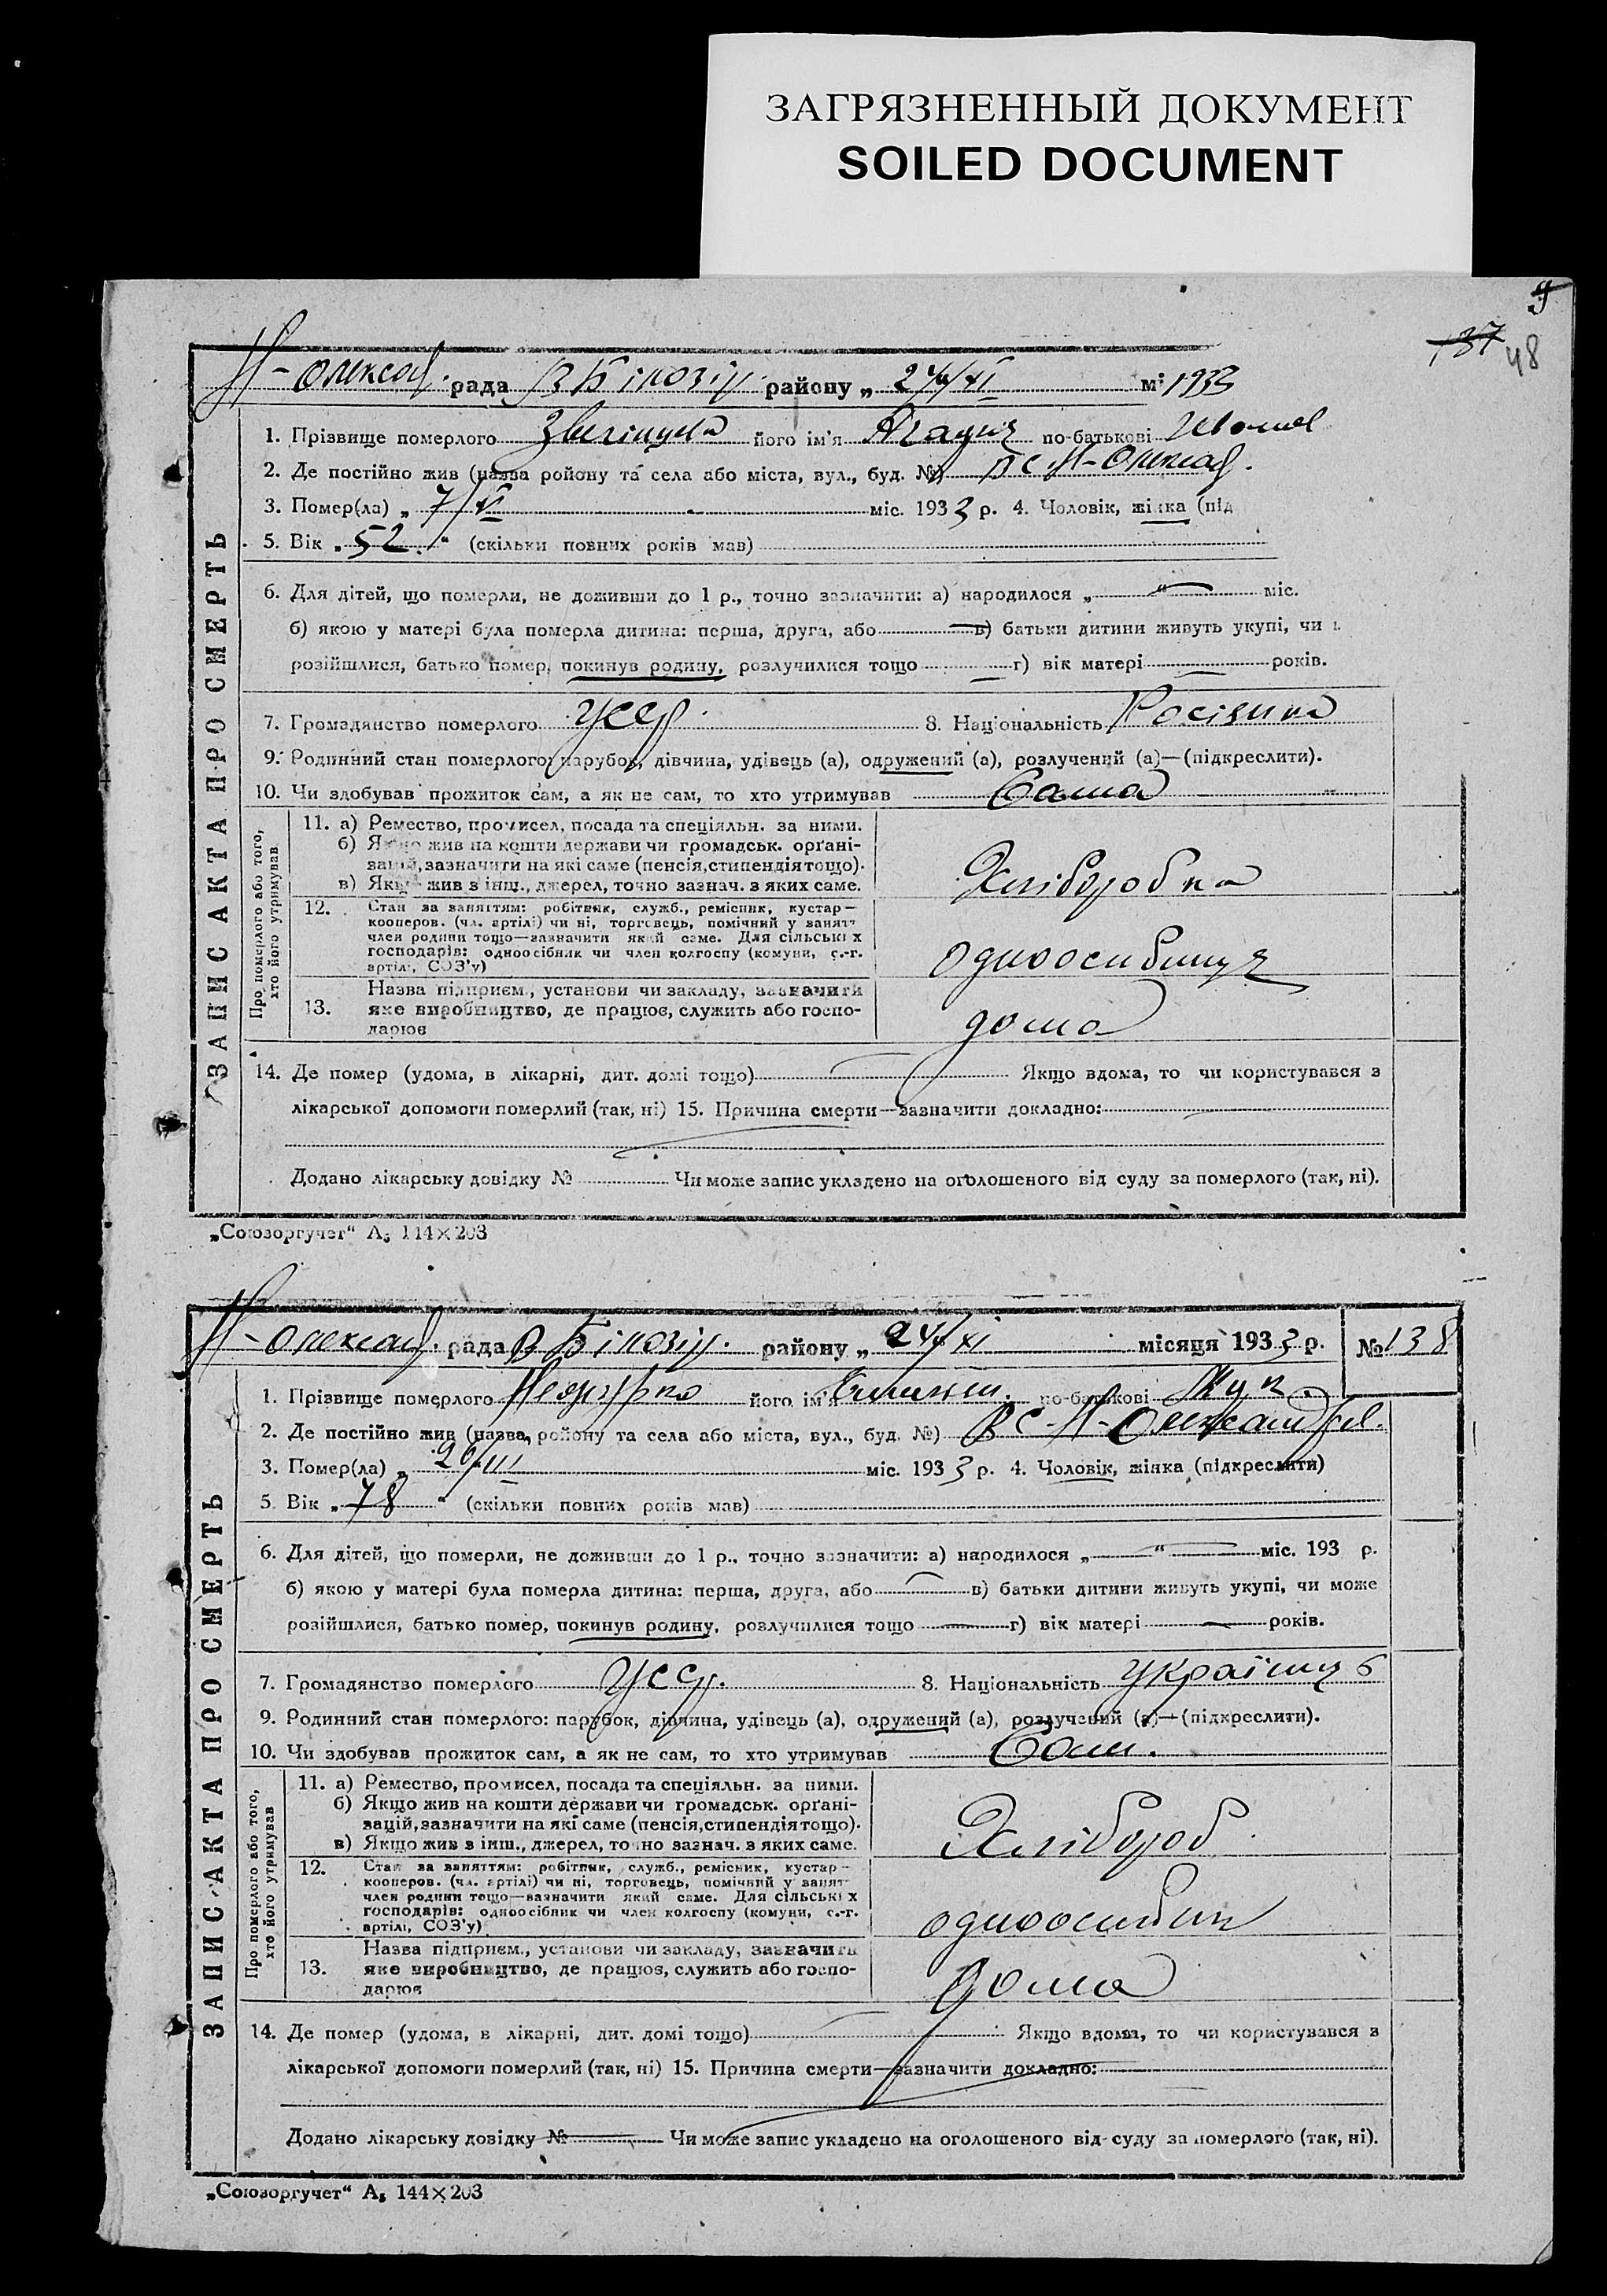 ЗАГРЯЗНЕННЫЙ ДОКУМЕНТ
SOILED DOCUMENT
9
137 48
Н-Олексад. рада В Білозір. району „ 24/XI м 1933
1. Прізвище померлого його ім'я по-батькові
2. Де постійно жив (назва ройону та села або міста, вул., буд. №) в с Н-Олексад.
3. Помер(ла) „ 7/V міс. 1933 р. 4. Чоловік, жінка (під
5. Вік „ 52 " (скільки повних років мав)
6. Для дітей, що померли, не доживши до 1 р., точно зазначити: а) народилося „ — “ міс.
б) якою у матері була померла дитина: перша, друга, або — в) батьки дитини живуть укупі, чи
розійшлися, батько помер, покинув родину, розлучилися тощо — г) вік матері — років.
7. Громадянство померлого УССР. 8. Національність Росіянка
9. Родинний стан померлого: парубок, дівчина, удівець (а), одружений (а), розлучений (а)—(підкреслити).
10. Чи здобував прожиток сам, а як не сам, то хто утримував Сама
ЗАПИС АКТА ПРО СМЕРТЬ
Про померлого або того, хто його утримував
11. а) Ремество, промисел, посада та спеціяльн. за ними.
б) Якщо жив на кошти держави чи громадськ. орґані-
зацій, зазначити на які саме (пенсія, стипендія тощо).
в) Якщо жив з інш., джерел, точно зазнач. з яких саме.
Хліборобка
12. Стан за заняттям: робітник, служб., ремісник, кустар—
кооперов. (чл. артілі) чи ні, торговець, помічний у занят
член родини тощо—зазначити який саме. Для сільських
господарів: одноосібник чи член колгоспу (комуни, с.-г.
артілі, СОЗ'у)
одноосибниця
13. Назва підприєм., установи чи закладу, зазначити
яке виробництво, де працює, служить або госпо-
дарює
дома
14. Де помер (удома, в лікарні, дит. домі тощо) Якщо вдома, то чи користувався з
лікарської допомоги померлий (так, ні) 15. Причина смерти—зазначити докладно:
Додано лікарську довідку № Чи може запис укладено на оголошеного від суду за померлого (так, ні).
„Союзоргучет“ А5 144×203
Н-Олексад. рада В Білозір. району „ 24/XI місяця 1933 р. № 138
1. Прізвище померлого його ім'я по-батькові
2. Де постійно жив (назва ройону та села або міста, вул., буд. №) В с-Н-Олександрів.
3. Помер(ла) „ 20/III міс. 1933 р. 4. Чоловік, жінка (підкреслити)
5. Вік „ 78 " (скільки повних років мав)
6. Для дітей, що померли, не доживши до 1 р., точно зазначити: а) народилося „ — “ — міс. 193 р.
б) якою у матері була померла дитина: перша, друга, або — в) батьки дитини живуть укупі, чи може
розійшлися, батько помер, покинув родину, розлучилися тощо — г) вік матері — років.
7. Громадянство померлого УССР. 8. Національність Українць
9. Родинний стан померлого: парубок, дівчина, удівець (а), одружений (а), розлучений (а)—(підкреслити).
10. Чи здобував прожиток сам, а як не сам, то хто утримував Сам.
ЗАПИС АКТА ПРО СМЕРТЬ
Про померлого або того, хто його утримував
11. а) Ремество, промисел, посада та спеціяльн. за ними.
б) Якщо жив на кошти держави чи громадськ. орґані-
зацій, зазначити на які саме (пенсія, стипендія тощо).
в) Якщо жив з інш., джерел, точно зазнач. з яких саме.
Хлібороб
12. Стан за заняттям: робітник, служб., ремісник, кустар—
кооперов. (чл. артілі) чи ні, торговець, помічний у занят
член родини тощо—зазначити який саме. Для сільських
господарів: одноосібник чи член колгоспу (комуни, с.-г.
артілі, СОЗ'у)
одноосибник
13. Назва підприєм., установи чи закладу, зазначити
яке виробництво, де працює, служить або госпо-
дарює
дома
14. Де помер (удома, в лікарні, дит. домі тощо) Якщо вдома, то чи користувався з
лікарської допомоги померлий (так, ні) 15. Причина смерти—зазначити докладно:
Додано лікарську довідку № Чи може запис укладено на оголошеного від суду за померлого (так, ні).
„Союзоргучет“ А5 144×203